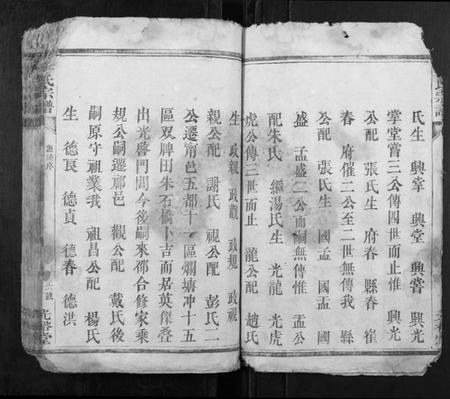 氏生 興掌 興堂 興嘗 興光
掌堂嘗三公傳四世而止惟 興光
公配 張氏生 府春 縣春 崔
春 府催二公至二世無傳我 縣
公配 張氏生 國孟 國孟 國
盛 孟盛二公而嗣無傳惟 孟公
配朱氏 繼湯氏生 光龍 光虎
虎公傳二世而止 龍公配 趙氏
生 政親 政觀 政規 政視
親公配 謝氏 視公配 彭氏二
公遷甯邑五都十一區爛塘冲十五
區双牌田朱石橋卜吉而居英傑叠
出光啓門閭今後嗣來邵合修家乘
規公嗣遷祁邑 觀公配 戴氏後
嗣原守祖業我 祖昌公配 楊氏
生 德良 德貞 德春 德洪
氏宗譜
光裕堂